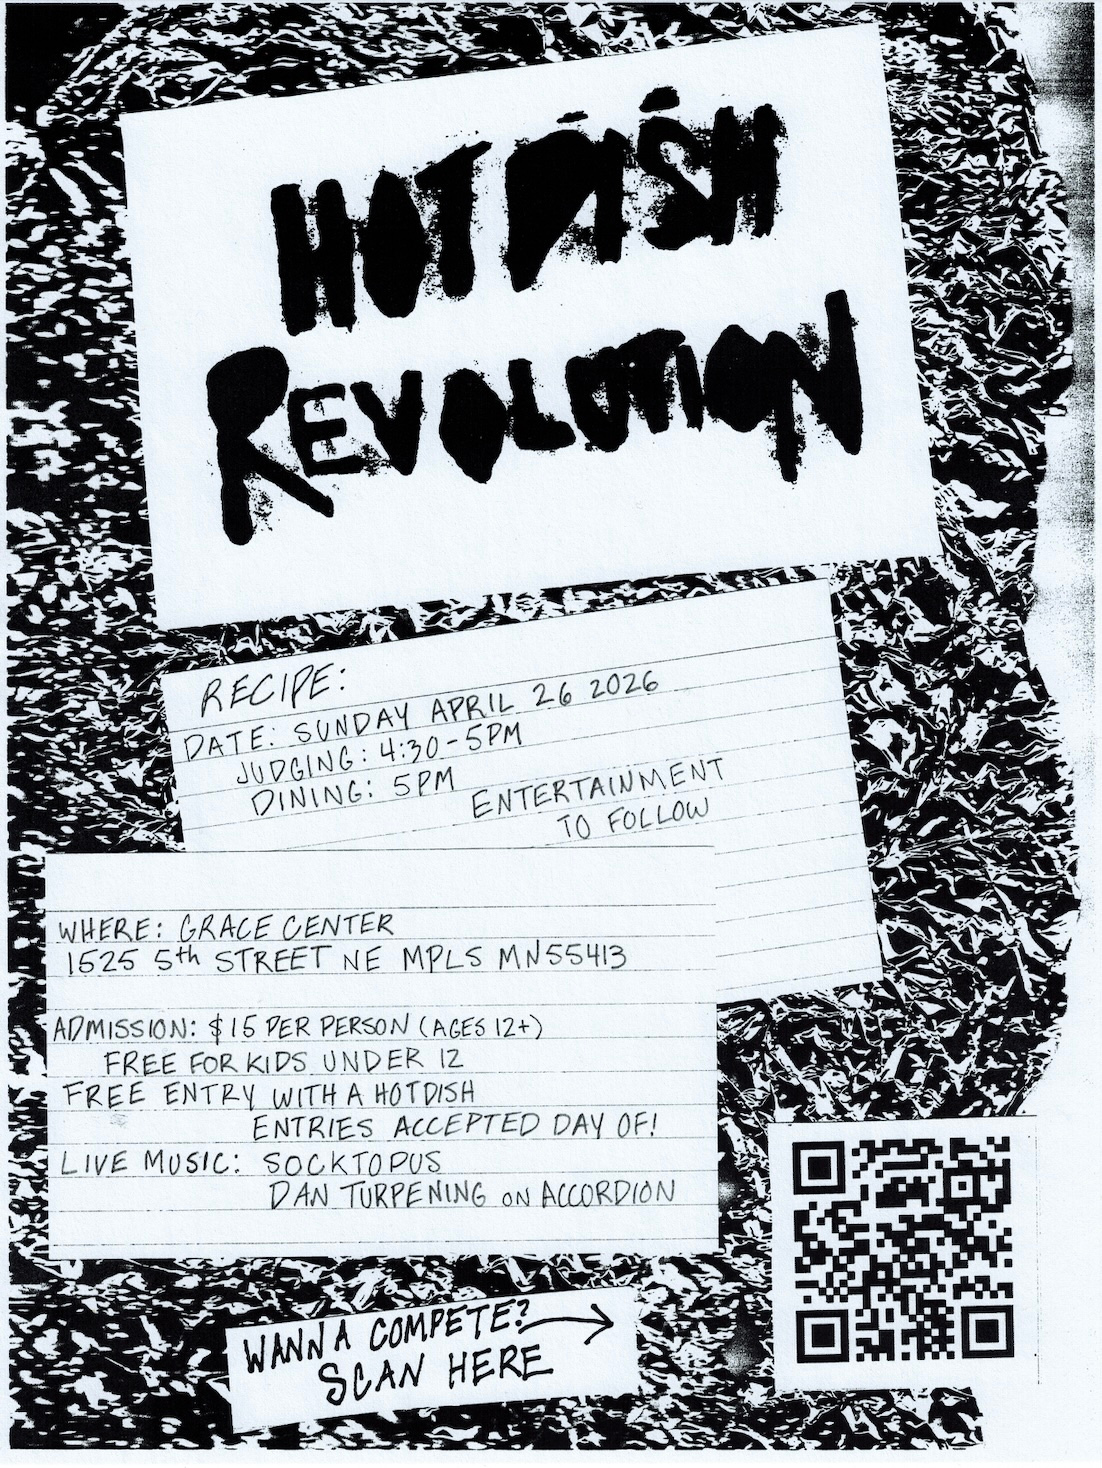 HOTDISH
REVOLUTION
RECIPE:
DATE: SUNDAY APRIL 26 2026
JUDGING: 4:30-5PM
DINING: 5PM
ENTERTAINMENT
TO FOLLOW
WHERE: GRACE CENTER
1525 5th STREET NE MPLS MN 55413
ADMISSION: $15 PER PERSON (AGES 12+)
FREE FOR KIDS UNDER 12
FREE ENTRY WITH A HOTDISH
ENTRIES ACCEPTED DAY OF!
LIVE MUSIC: SOCKTOPUS
DAN TURPENING ON ACCORDION
WANNA COMPETE?
SCAN HERE